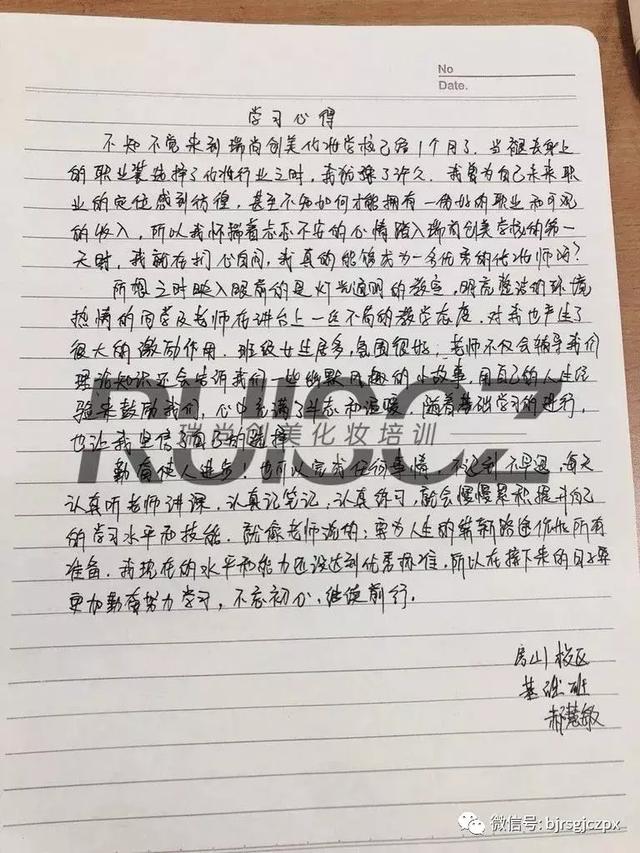 No
Date.
学习心得
不知不觉来到瑞尚创美化妆学校已经1个月了。当褪去身上
的职业装选择了化妆行业之时，我犹豫了许久。我曾为自己未来职
业的定位感到彷徨，甚至不知如何才能拥有一份好的职业和可观
的收入，所以我怀揣着忐忑不安的心情踏入瑞尚创美学校的第一
天时，我就在扪心自问，我真的能够成为一名优秀的化妆师吗？
所想之时映入眼帘的是灯光通明的教室，明亮整洁的环境
热情的同学及老师在讲台上一丝不苟的教学态度，对我也产生了
很大的激励作用。班级女生居多，氛围很好；老师不仅会辅导我们
理论知识还会告诉我们一些幽默风趣的小故事，用自己的人生经
验来鼓励我们，心中充满了斗志和温暖。随着基础学习的进行，
也让我坚信了自己的选择
勤奋使人进步！也可以完成任何事情，不迟到不早退，每天
认真听老师讲课，认真记笔记，认真练习，就会慢慢累积提升自己
的学习水平和技能。就像老师说的：要为人生的崭新路途做好所有
准备。我现在的水平和能力还没达到优秀标准，所以在接下来的日子要
更加勤奋努力学习，不忘初心，继续前行。
房山校区
基础班
郝慧敏
RUISCZ
瑞尚创美化妆培训
微信号: bjrsgjczpx